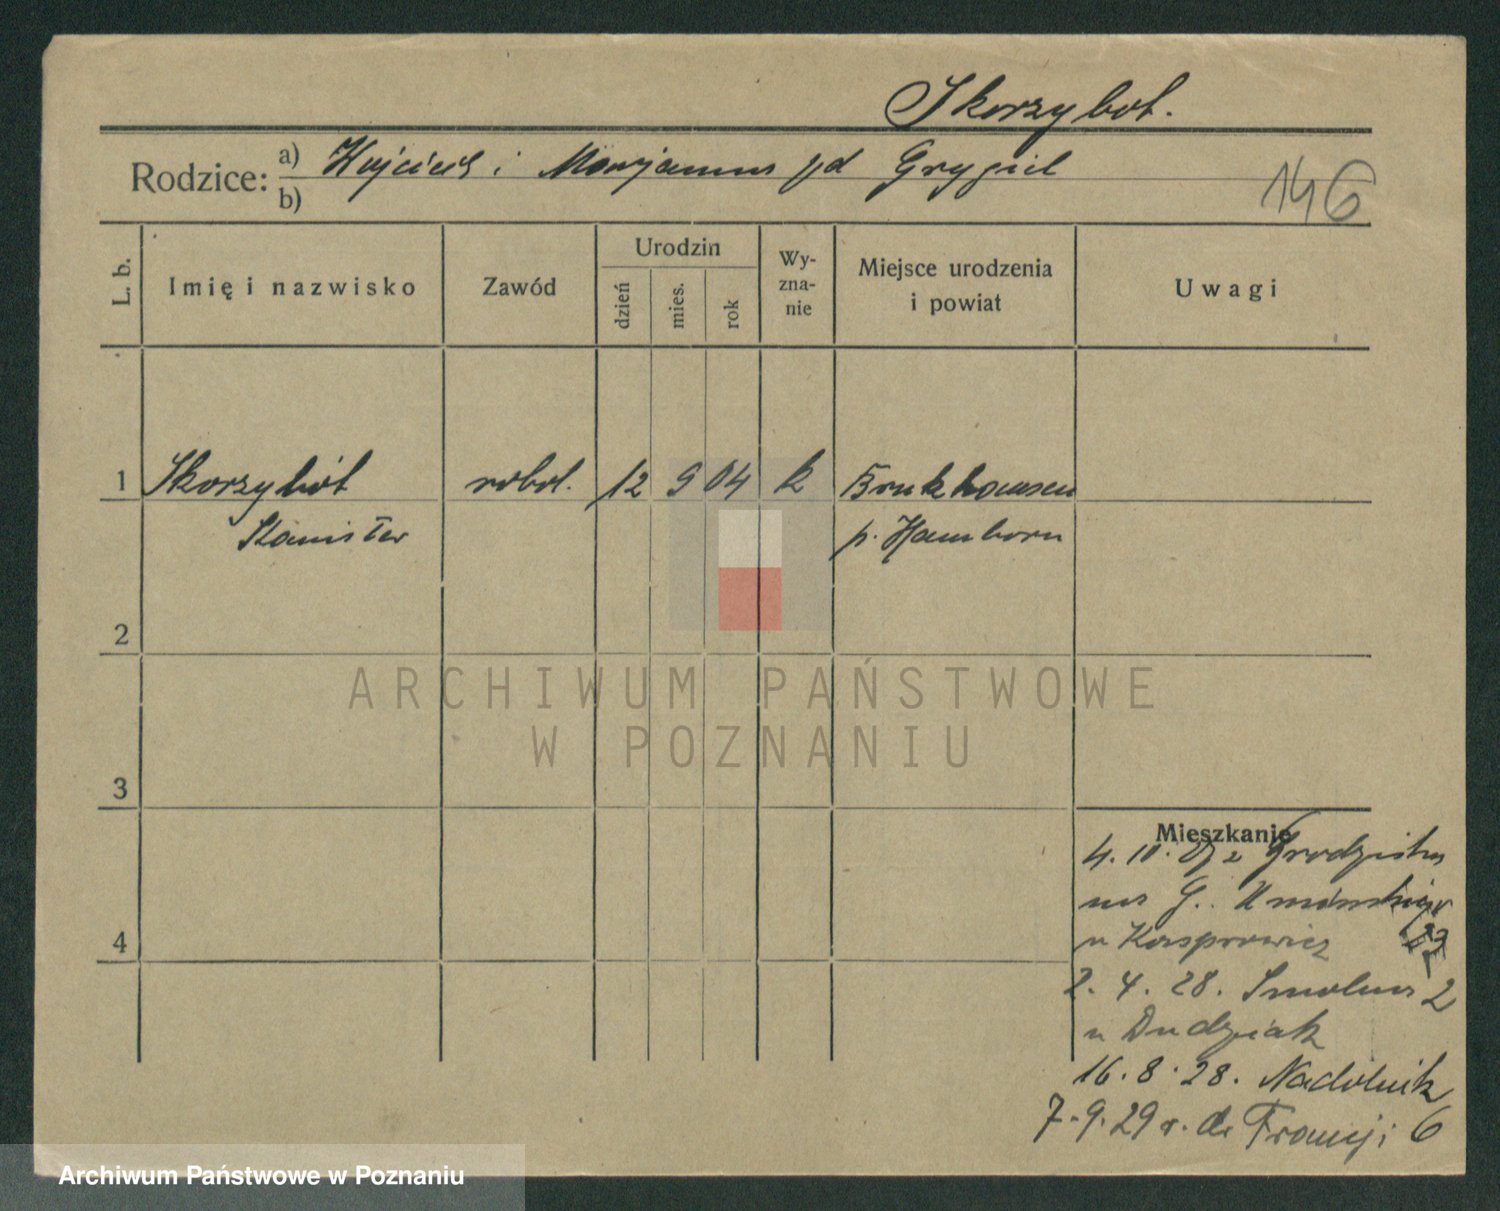 Skorzybot.
Rodzice: a) Wojciech i Marjanna zd Grygiel
b)
146
L. b.
Imię i nazwisko
Zawód
Urodzin
dzień
mies.
rok
Wy-
zna-
nie
Miejsce urodzenia
i powiat
Uwagi
1 Skorzybót robot. 12 9 04 k Brukhausen
Stanisław p. Hamborn
2
ARCHIWUM PAŃSTWOWE
W POZNANIU
3
Mieszkanie
4. 10. z Grodziska
na G.. Umińskiego
u Kasprowicz 23
4
2. 4. 28. Smolna 2
u Dudziak
16. 8. 28. Nadolnik
7. 9. 29 r. do Francji 6
Archiwum Państwowe w Poznaniu